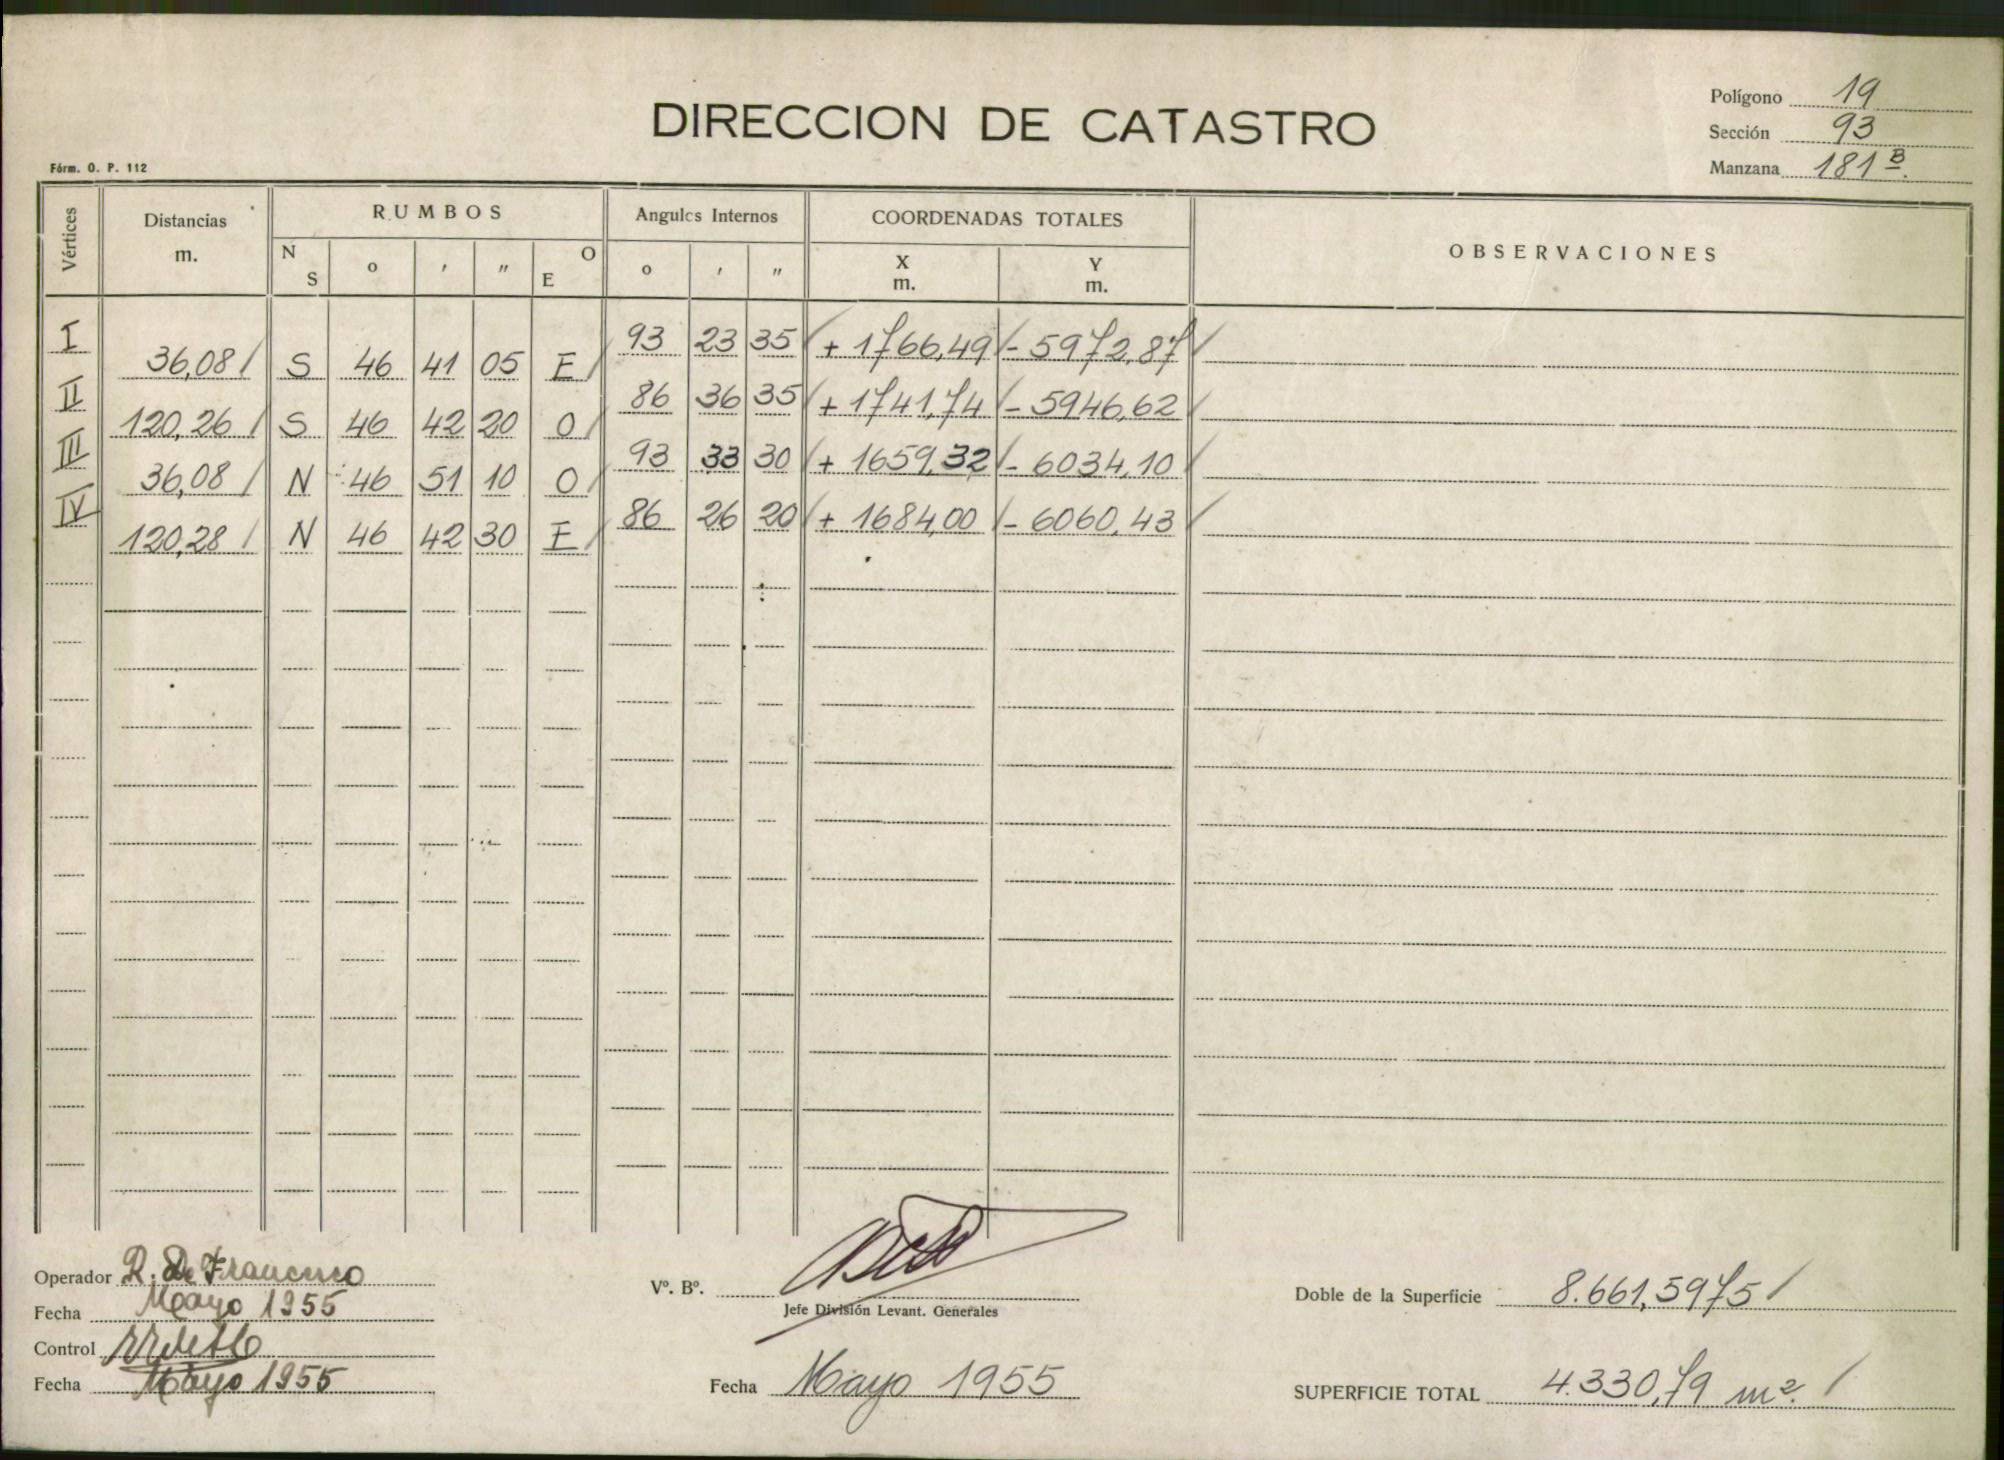 DIRECCION DE CATASTRO
Polígono 19
Sección 93
Manzana 181 B.
Fórm. O. P. 112
Vértices Distancias m. RUMBOS Angulos Internos COORDENADAS TOTALES OBSERVACIONES
N S o ' " E O o ' " X m. Y m.
I 93 23 35 + 1766,49 - 5972,87
36,08 S 46 41 05 E
II 86 36 35 + 1741,74 - 5946,62
120,26 S 46 42 20 O
III 93 33 30 + 1659,32 - 6034,10
36,08 N 46 51 10 O
IV 86 26 20 + 1684,00 - 6060,43
120,28 N 46 42 30 E
Operador R. De Francisco
Fecha Mayo 1955
Control
Fecha Mayo 1955
Vº. Bº.
Jefe División Levant. Generales
Fecha Mayo 1955
Doble de la Superficie 8.661,5975
SUPERFICIE TOTAL 4.330,79 m2.